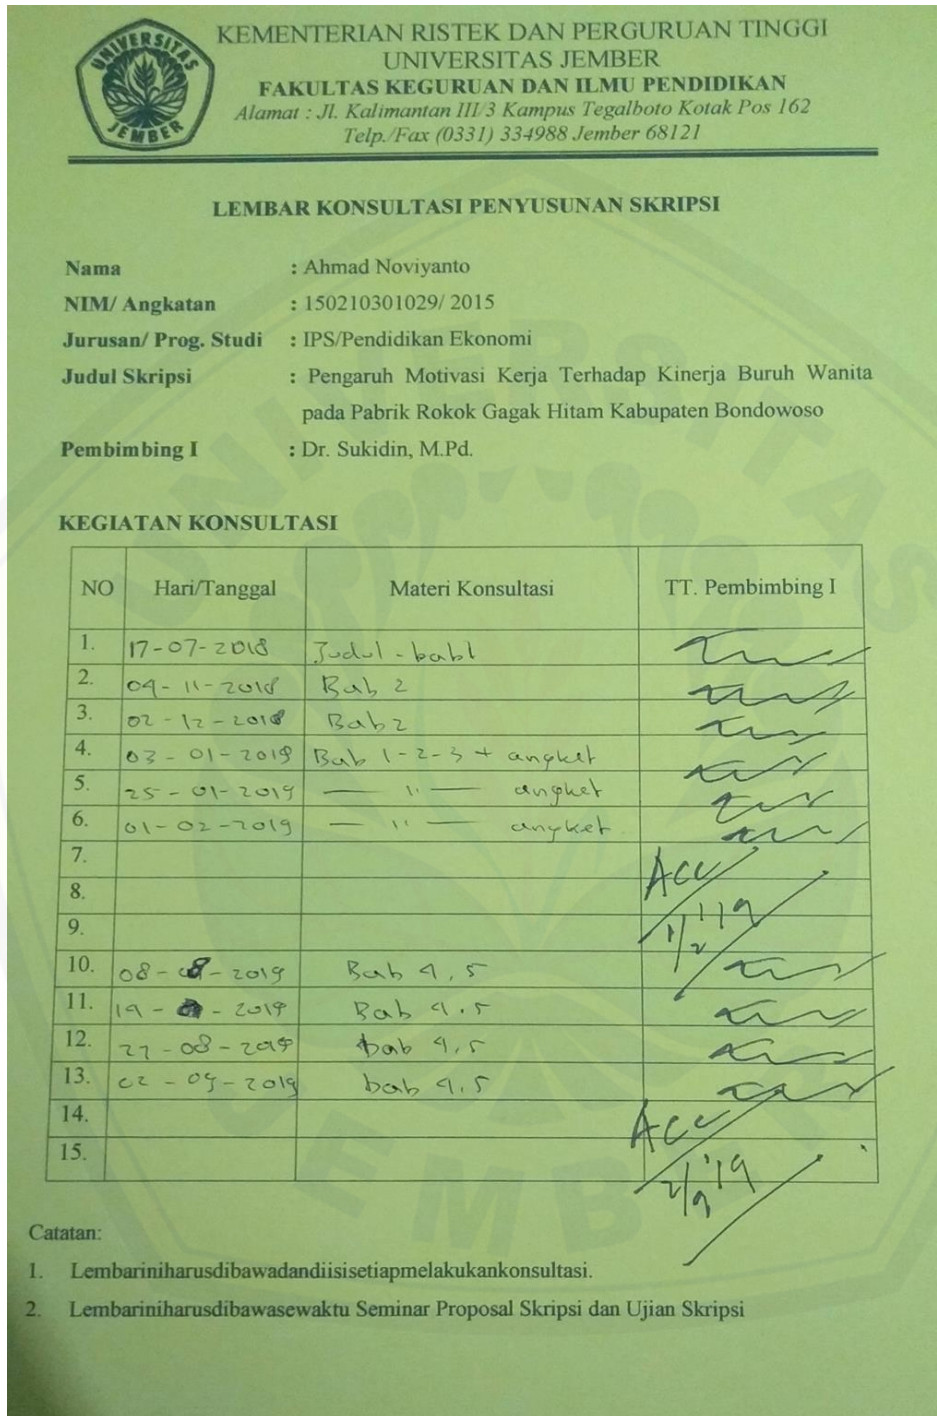 UNIVERSITAS
JEMBER
KEMENTERIAN RISTEK DAN PERGURUAN TINGGI
UNIVERSITAS JEMBER
FAKULTAS KEGURUAN DAN ILMU PENDIDIKAN
Alamat : Jl. Kalimantan III/3 Kampus Tegalboto Kotak Pos 162
Telp./Fax (0331) 334988 Jember 68121
LEMBAR KONSULTASI PENYUSUNAN SKRIPSI
Nama : Ahmad Noviyanto
NIM/ Angkatan : 150210301029/ 2015
Jurusan/ Prog. Studi : IPS/Pendidikan Ekonomi
Judul Skripsi : Pengaruh Motivasi Kerja Terhadap Kinerja Buruh Wanita
pada Pabrik Rokok Gagak Hitam Kabupaten Bondowoso
Pembimbing I : Dr. Sukidin, M.Pd.
KEGIATAN KONSULTASI
NO Hari/Tanggal Materi Konsultasi TT. Pembimbing I
1. 17-07-2018 Judul - bab1
2. 04-11-2018 Bab 2
3. 02-12-2018 Bab 2
4. 03-01-2019 Bab 1-2-3 + angket
5. 25-01-2019 — " — angket
6. 01-02-2019 — " — angket
7. ACC
8.
9. 1/2 '19
10. 08-08-2019 Bab 4,5
11. 19- -2019 Bab 4.5
12. 27-08-2019 bab 4,5
13. 02-09-2019 bab 4.5
14. ACC
15. 2/9 '19
Catatan:
1. Lembariniharusdibawadandiisisetiapmelakukankonsultasi.
2. Lembariniharusdibawasewaktu Seminar Proposal Skripsi dan Ujian Skripsi